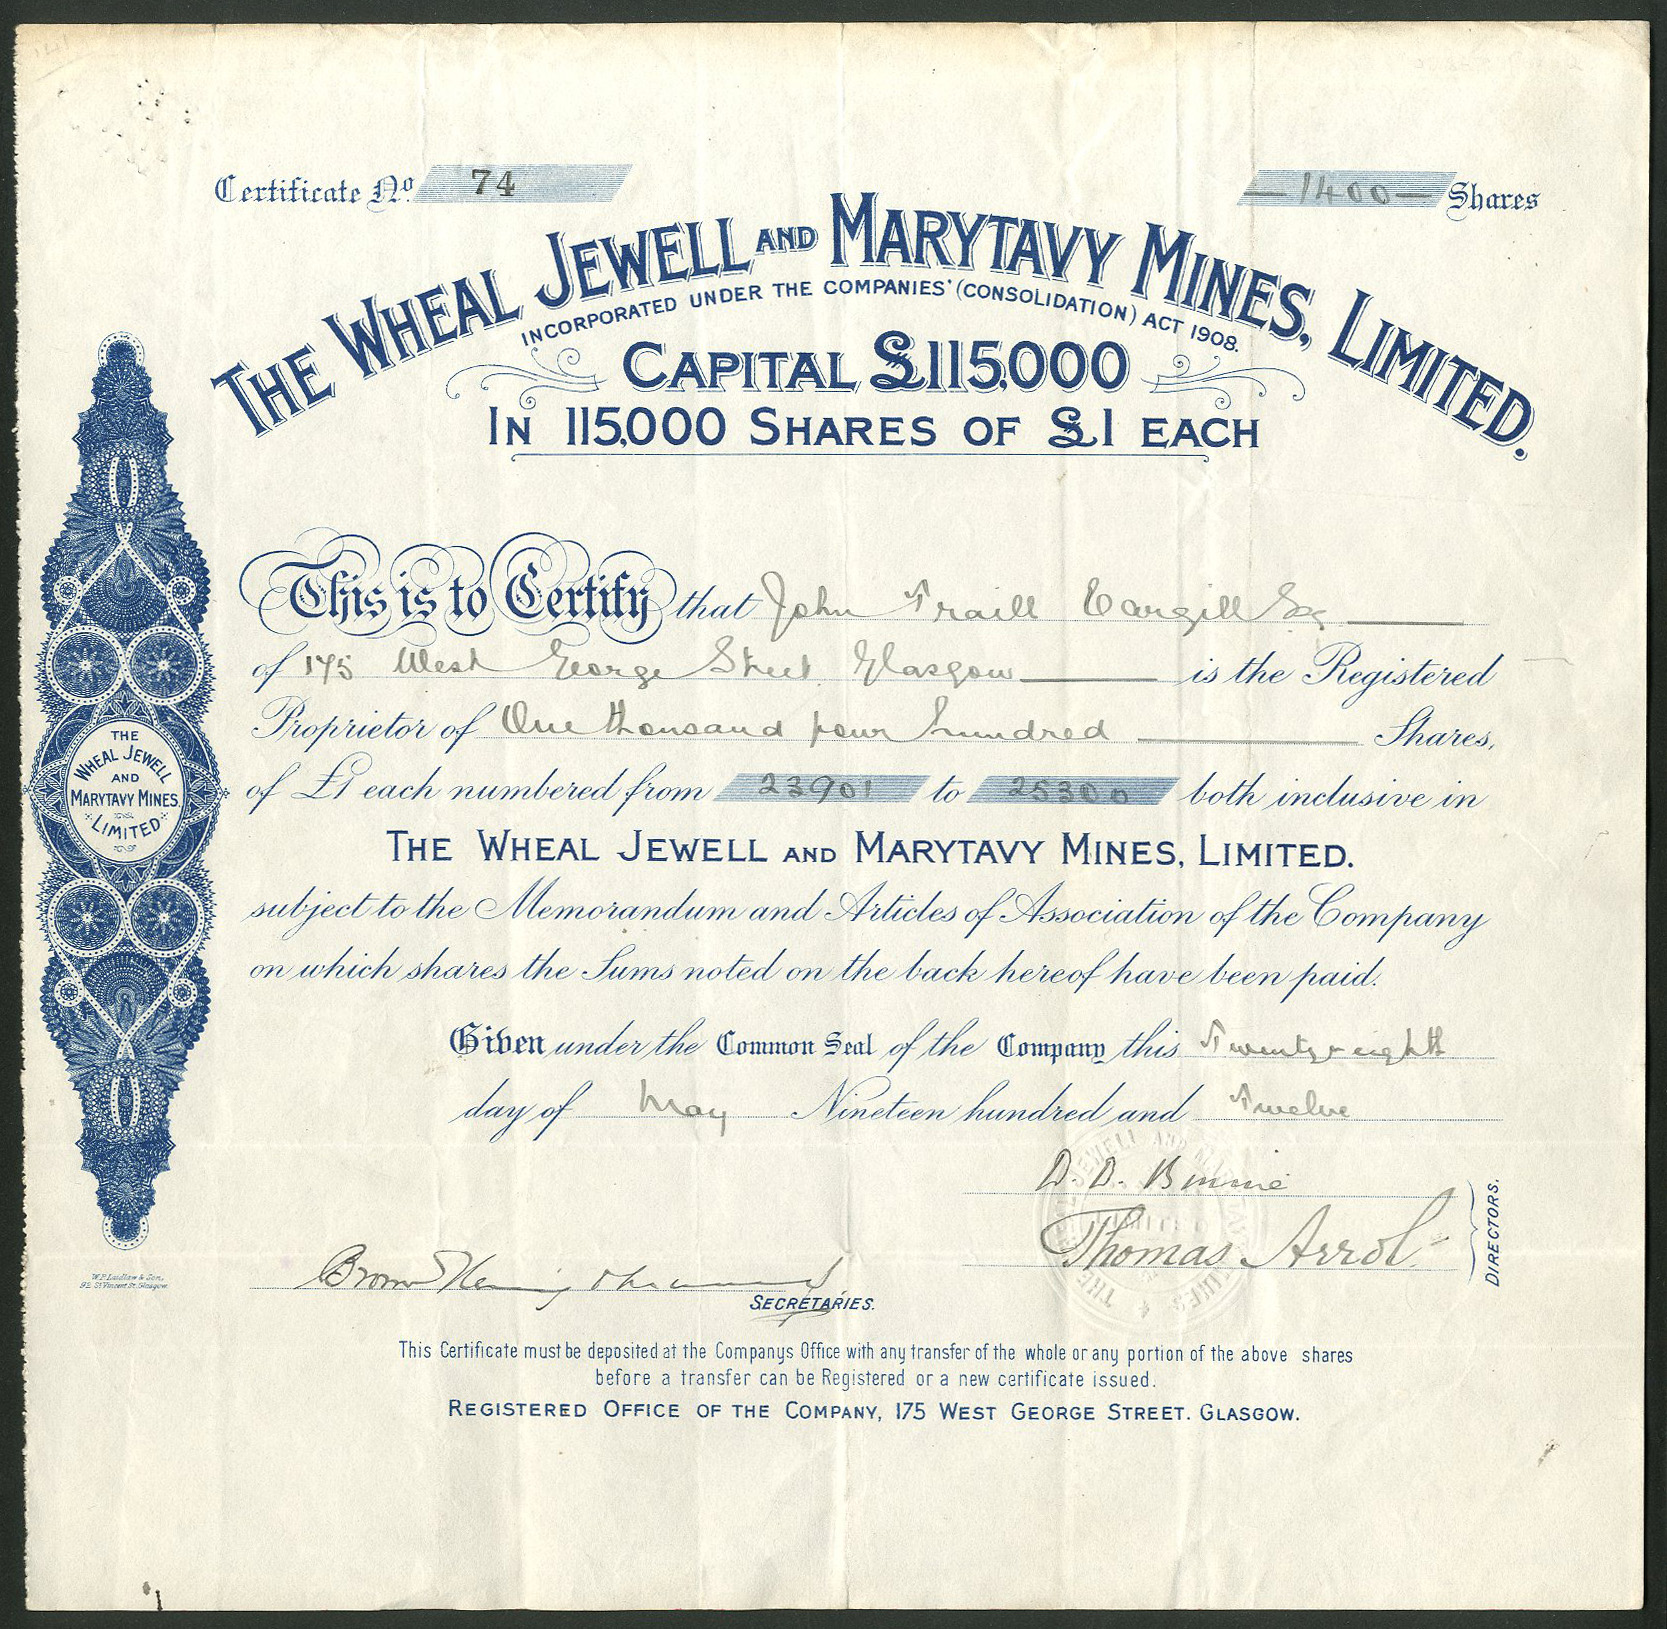 Certificate No. 74
—1400— Shares
THE WHEAL JEWELL AND MARYTAVY MINES, LIMITED.
INCORPORATED UNDER THE COMPANIES' (CONSOLIDATION) ACT 1908.
CAPITAL £115,000
IN 115,000 SHARES OF £1 EACH
This is to Certify that John Traill Cargill Esq
of 175 West George Street Glasgow is the Registered
Proprietor of One thousand four hundred Shares,
of £1 each numbered from 23901 to 25300 both inclusive in
THE WHEAL JEWELL AND MARYTAVY MINES, LIMITED.
subject to the Memorandum and Articles of Association of the Company
on which shares the Sums noted on the back hereof have been paid.
Given under the Common Seal of the Company this Twenty-eighth
day of May Nineteen hundred and Twelve
D. D. Binnie
Thomas Arrol
DIRECTORS.
SECRETARIES.
This Certificate must be deposited at the Companys Office with any transfer of the whole or any portion of the above shares
before a transfer can be Registered or a new certificate issued.
REGISTERED OFFICE OF THE COMPANY, 175 WEST GEORGE STREET. GLASGOW.
THE
WHEAL JEWELL
AND
MARYTAVY MINES,
LIMITED
W.P. Laidlaw & Son,
92, St Vincent St. Glasgow.